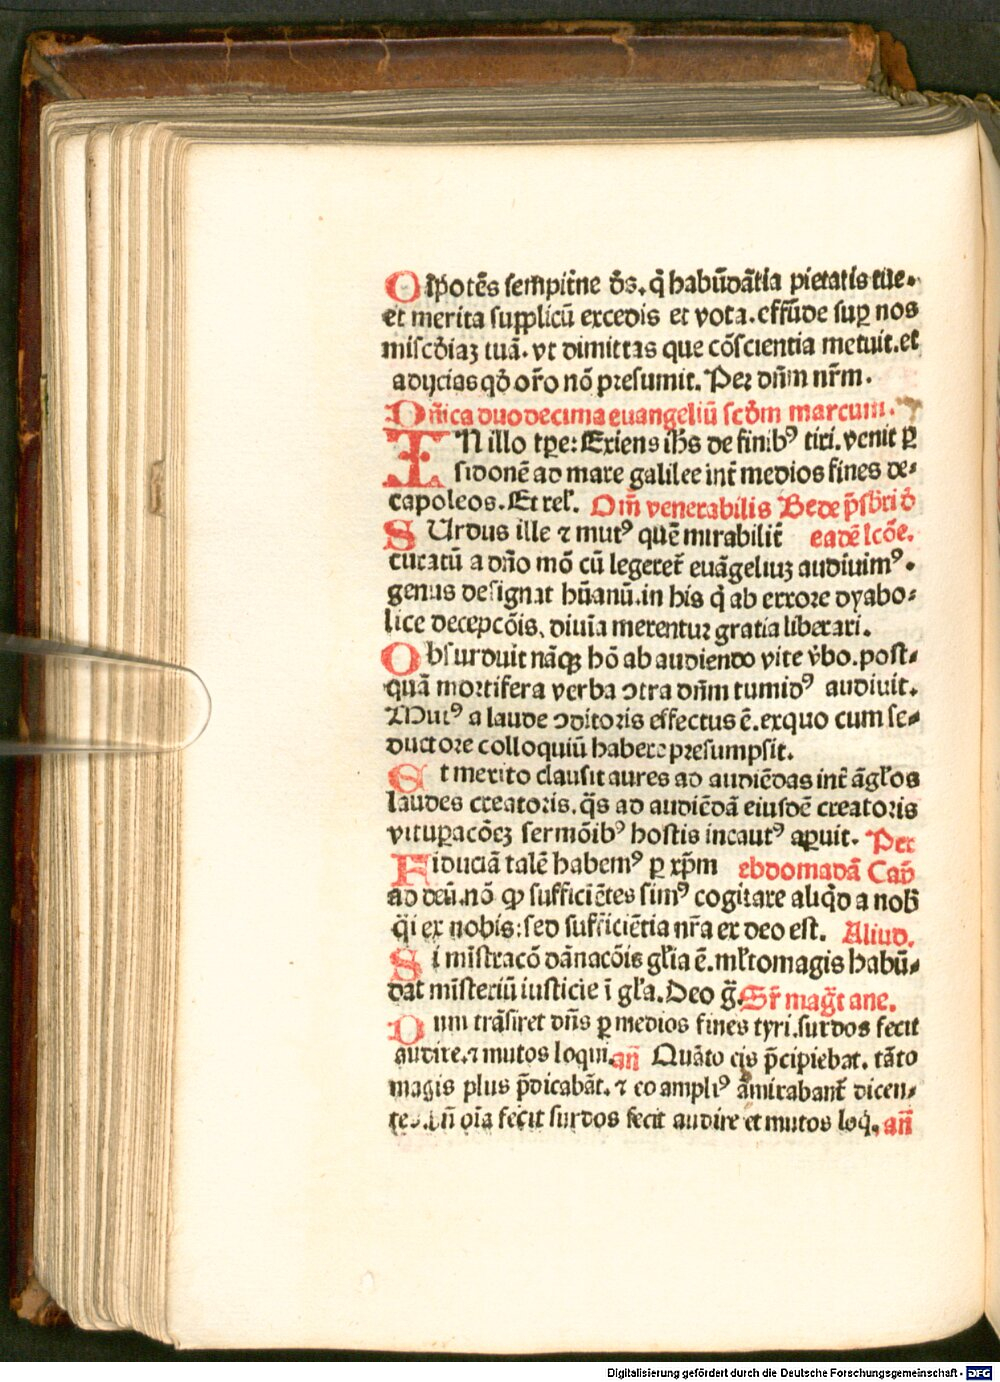 Oīpotēs sempit̄ne d̄s. q̇ habūdātia pietatis tue.
et merita supplicū excedis et vota. effūde suꝑ nos
misc̄diaꝫ tuā. vt dimittas que cōscientia metuit. et
adijcias qd̄ or̄o nō presumit. Per dn̄m nr̄m.
Dn̄ica duodecima euangeliū scd̄m marcum.
IN illo tꝑe: Exiens ih̄s de finibꝰ tiri. venit ꝑ
sidonē ad mare galilee int̄ medios fines de-
capoleos. Et rel'. Om̄ venerabilis Bede p̄sbri d̄
SUrdus ille ⁊ mutꝰ quē mirabilit̄ eadē lcōe.
curatū a dn̄o mō cū legeret̄ euāgeliuꝫ audiuimꝰ.
genus designat hūanū. in his q̇ ab errore dyabo-
lice decepcōis, diuīa merentur gratia liberari.
Obsurduit nāqꝫ hō ab audiendo vite v̄bo. post-
quā mortifera verba ↄtra dn̄m tumidꝰ audiuit.
Mutꝰ a laude ↄditoris effectus ē. exquo cum se-
ductore colloquiū habere presumpsit.
Et merito clausit aures ad audiēdas int̄ āgl'os
laudes creatoris. q̄s ad audiēdā eiusdē creatoris
vituꝑacōeꝫ sermōibꝰ hostis incautꝰ aꝑuit. Per
Fiduciā talē habemꝰ ꝑ xp̄m ebdomadā Cap̄
ad deū. nō ꝙ sufficiētes simꝰ cogitare aliq̇d a nob̄
q̇i ex nobis: sed sufficiētia nr̄a ex deo est. Aliud.
Si mīstracō dānacōis gl'ia ē. ml'tomagis habū-
dat mīsteriū iusticie ī gl'a. Deo g̃. Sr̄ mag̃t ane.
Dum trāsiret dn̄s ꝑ medios fines tyri. surdos fecit
audire. ⁊ mutos loqui. an̄ Quāto eis p̄cipiebat. tāto
magis plus p̄dicabāt. ⁊ eo ampliꝰ āmirabant̄ dicen-
tes. bn̄ oīa fecit surdos fecit audire et mutos loq̇. an̄
Digitalisierung gefördert durch die Deutsche Forschungsgemeinschaft - DFG